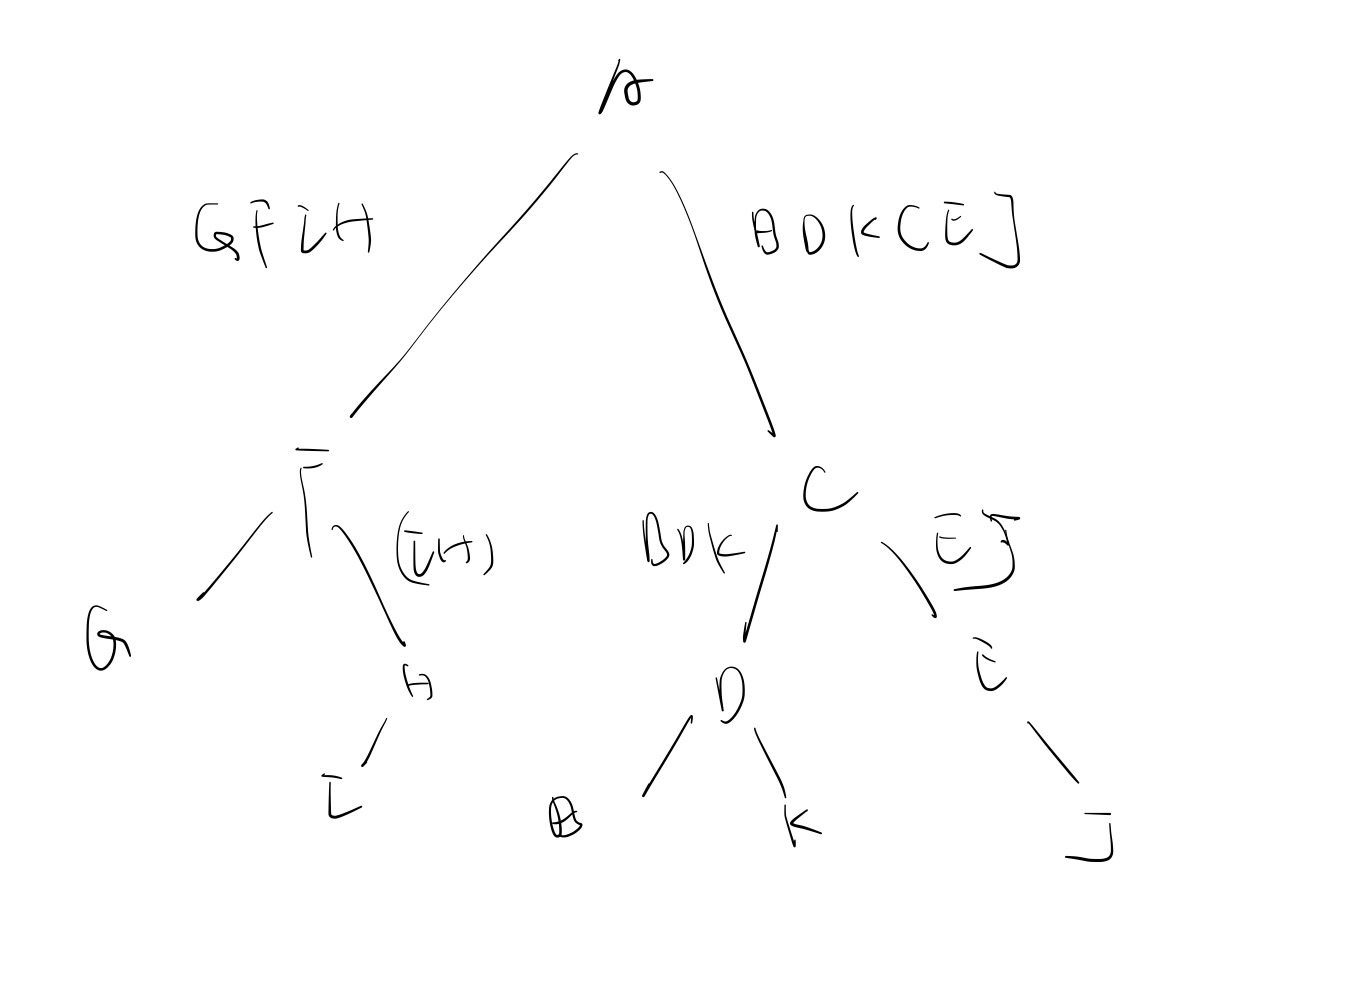 A
GFIH BDKCEJ
F C
(IH) BDK EJ
G H D E
I B K J